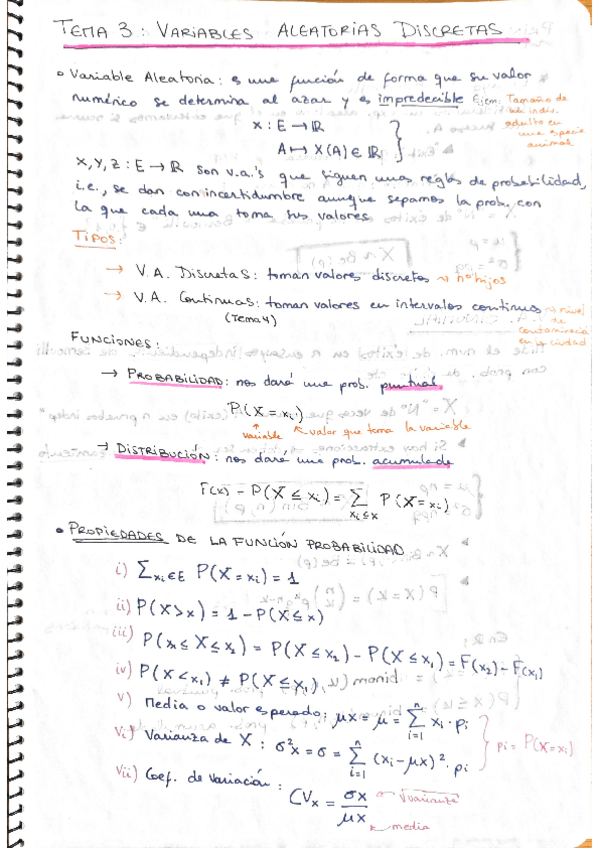 TEMA 3: VARIABLES ALEATORIAS DISCRETAS
• Variable Aleatoria: es una función de forma que su valor
numérico se determina al azar y es impredecible Ejem. Tamaño de
adulto en
una especie
animal
X: E → ℝ
A ↦ X(A) ∈ ℝ
X, Y, Z: E → ℝ son v.a.'s que siguen unas reglas de probabilidad,
i.e., se dan con incertidumbre aunque sepamos la prob. con
la que cada una toma sus valores.
TIPOS:
→ V.A. Discretas: toman valores discretos → nº hijos
→ V.A. Continuas: toman valores en intervalos continuos → nivel
de
contaminació
en la ciudad
(Tema 4)
FUNCIONES:
→ PROBABILIDAD: nos dará una prob. puntual.
P(X = xi)
variable valor que toma la variable
→ DISTRIBUCIÓN: nos dará una prob. acumulada
F(x) - P(X ≤ xi) = Σ xi≤x P(X = xi)
• PROPIEDADES DE LA FUNCIÓN PROBABILIDAD
i) Σxi∈E P(X = xi) = 1
ii) P(X > x) = 1 - P(X ≤ x)
iii) P(x1 ≤ X ≤ x2) = P(X ≤ x2) - P(X ≤ x1) = F(x2) - F(x1)
iv) P(X < x1) ≠ P(X ≤ x1)
v) Media o valor esperado: μx = μ = Σ i=1 n xi · pi
vi) Varianza de X: σ²x = σ = Σ i=1 n (xi - μx)² · pi
pi = P(X = xi)
vii) Coef. de variación:
CVx = σx / μx
√varianza
media